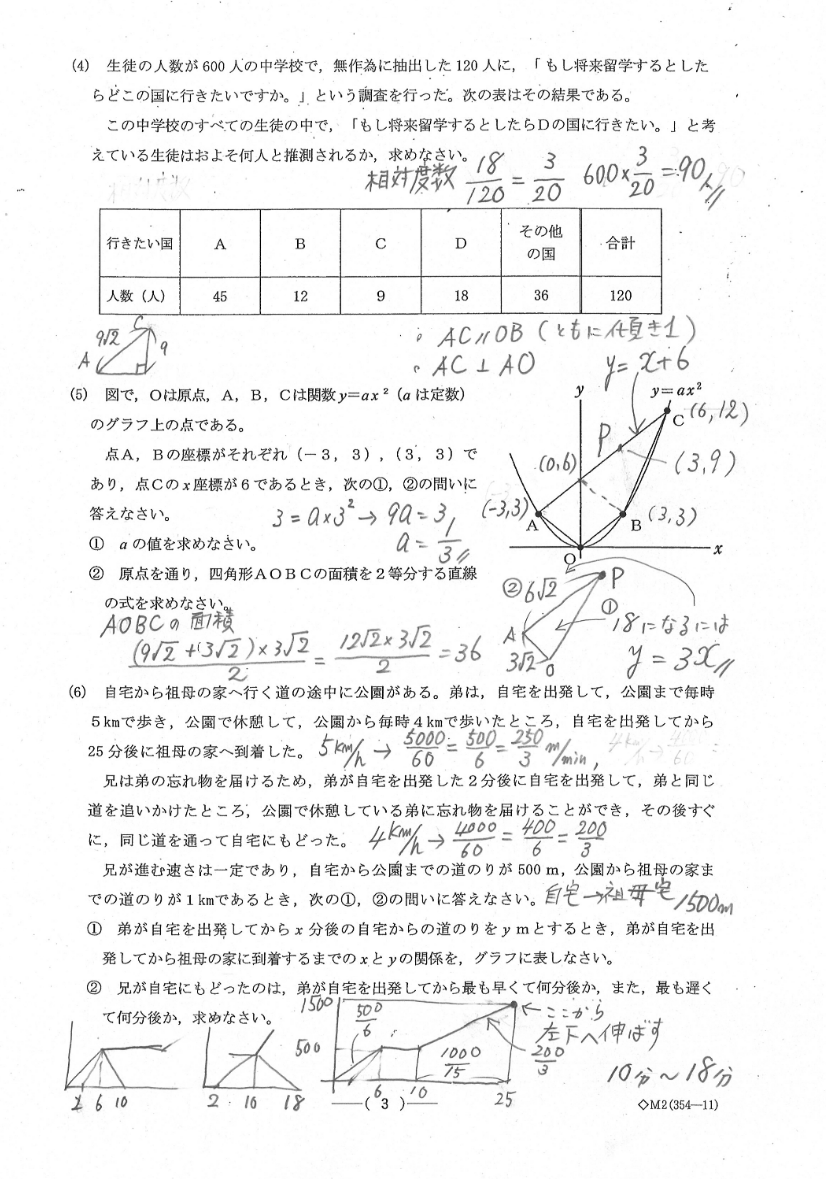 (4) 生徒の人数が 600 人の中学校で，無作為に抽出した 120 人に，「もし将来留学するとした
らどこの国に行きたいですか。」という調査を行った。次の表はその結果である。
この中学校のすべての生徒の中で，「もし将来留学するとしたらDの国に行きたい。」と考
えている生徒はおよそ何人と推測されるか，求めなさい。
相対度数 18/120 = 3/20 600×3/20 = 90人
行きたい国 A B C D その他の国 合計
人数（人） 45 12 9 18 36 120
9√2 C 9 A
。AC∥OB（ともに傾き1）
。AC⊥AO y=x+6
(5) 図で，Oは原点，A，B，Cは関数y=ax²（aは定数）
のグラフ上の点である。
点A，Bの座標がそれぞれ（−3，3），（3，3）で
あり，点Cのx座標が6であるとき，次の①，②の問いに
答えなさい。 3=a×3²→9a=3,
① aの値を求めなさい。 a=1/3
② 原点を通り，四角形AOBCの面積を2等分する直線
の式を求めなさい。
y y=ax²
C (6,12)
P
(0,6) (3,9)
(-3,3) A B (3,3)
O x
② 6√2 P
① 18になるには
A
3√2 O y=3x
AOBCの面積
(9√2+(3√2)×3√2/2 = 12√2×3√2/2 = 36
(6) 自宅から祖母の家へ行く道の途中に公園がある。弟は，自宅を出発して，公園まで毎時
5㎞で歩き，公園で休憩して，公園から毎時4㎞で歩いたところ，自宅を出発してから
25分後に祖母の家へ到着した。 5km/h → 5000/60 = 500/6 = 250/3 m/min,
兄は弟の忘れ物を届けるため，弟が自宅を出発した2分後に自宅を出発して，弟と同じ
道を追いかけたところ，公園で休憩している弟に忘れ物を届けることができ，その後すぐ
に，同じ道を通って自宅にもどった。 4km/h → 4000/60 = 400/6 = 200/3
兄が進む速さは一定であり，自宅から公園までの道のりが 500 m，公園から祖母の家ま
での道のりが1㎞であるとき，次の①，②の問いに答えなさい。 自宅→祖母宅 1500m
① 弟が自宅を出発してからx分後の自宅からの道のりをymとするとき，弟が自宅を出
発してから祖母の家に到着するまでのxとyの関係を，グラフに表しなさい。
② 兄が自宅にもどったのは，弟が自宅を出発してから最も早くて何分後か，また，最も遅く
て何分後か，求めなさい。
2 6 10
2 10 18
1500 500/6
500 1000/15 200/3
6 10 25
←ここから
左下へ伸ばす
10分〜18分
―( 3 )―
◇M2(354―11)